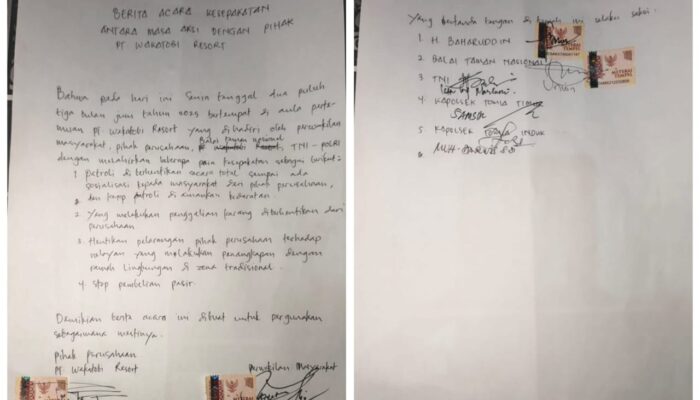 BERITA ACARA KESEPAKATAN
ANTARA MASA AKSI DENGAN PIHAK
PT WAKATOBI RESORT
Bahwa pada hari ini Senin tanggal dua puluh
tiga bulan juni tahun 2025 bertempat di aula perte-
muan PT Wakatobi Resort yang dihadiri oleh perwakilan
masyarakat, pihak perusahaan, Balai Taman nasional, TNI - POLRI
dengan melahirkan beberapa poin kesepakatan sebagai berikut:
1 petroli diberhentikan secara total sampai ada
sosialisasi kepada masyarakat dari pihak perusahaan,
dan petroli di amankan kedaratan.
2. Yang melakukan penggalian karang diberhentikan dari
perusahaan
3. Hentikan pelarangan pihak perusahaan terhadap
nelayan yang melakukan penangkapan dengan
ramah lingkungan di zona tradisional.
4. Stop pembelian pasir.
Demikian berita acara ini dibuat untuk pergunakan
sebagaimana mestinya.
pihak perusahaan
PT Wakatobi Resort
perwakilan Masyarakat
Yang bertanda tangan di bawah ini selaku saksi.
1. H. BAHARUDDIN
2. BALAI TAMAN NASIONAL
3. TNI
4. KAPOLSEK TOMIA TIMUR
SAMSUL
5. KAPOLSEK TOMIA INDUK
METERAI
TEMPEL
TEMPEL